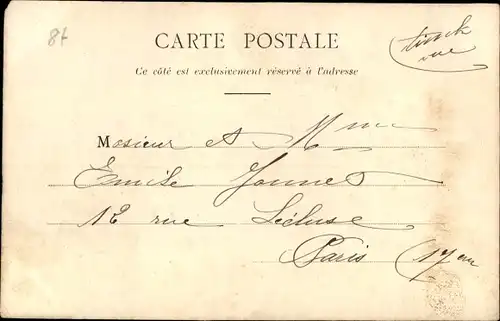 84
CARTE POSTALE
timbk
vue
Ce côté est exclusivement réservé à l'adresse
Mosieur et Mme
Emile Jonnet
12 rue Lécluse
Paris (17 em